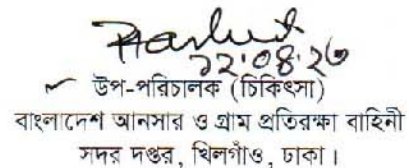 ১২.০৪.২৩
উপ-পরিচালক (চিকিৎসা)
বাংলাদেশ আনসার ও গ্রাম প্রতিরক্ষা বাহিনী
সদর দপ্তর, খিলগাঁও, ঢাকা।